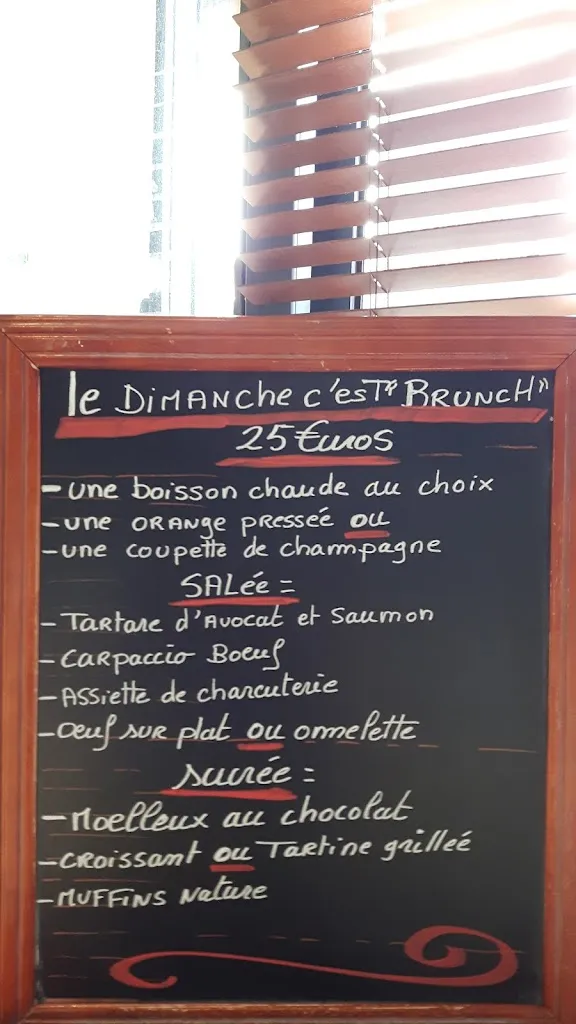 le DIMANCHE c'est "BRUNCH"
25 Euros
- une boisson chaude au choix
- une ORANGE pressée ou
- une coupette de champagne
SALée =
- Tartare d'Avocat et Saumon
- CARPACCIO Boeuf
- ASSiette de charcuterie
- Oeuf sur plat ou ommelette
sucrée =
- Moelleux au chocolat
- CROissant ou Tartine grilleé
- MUFFiNS Nature